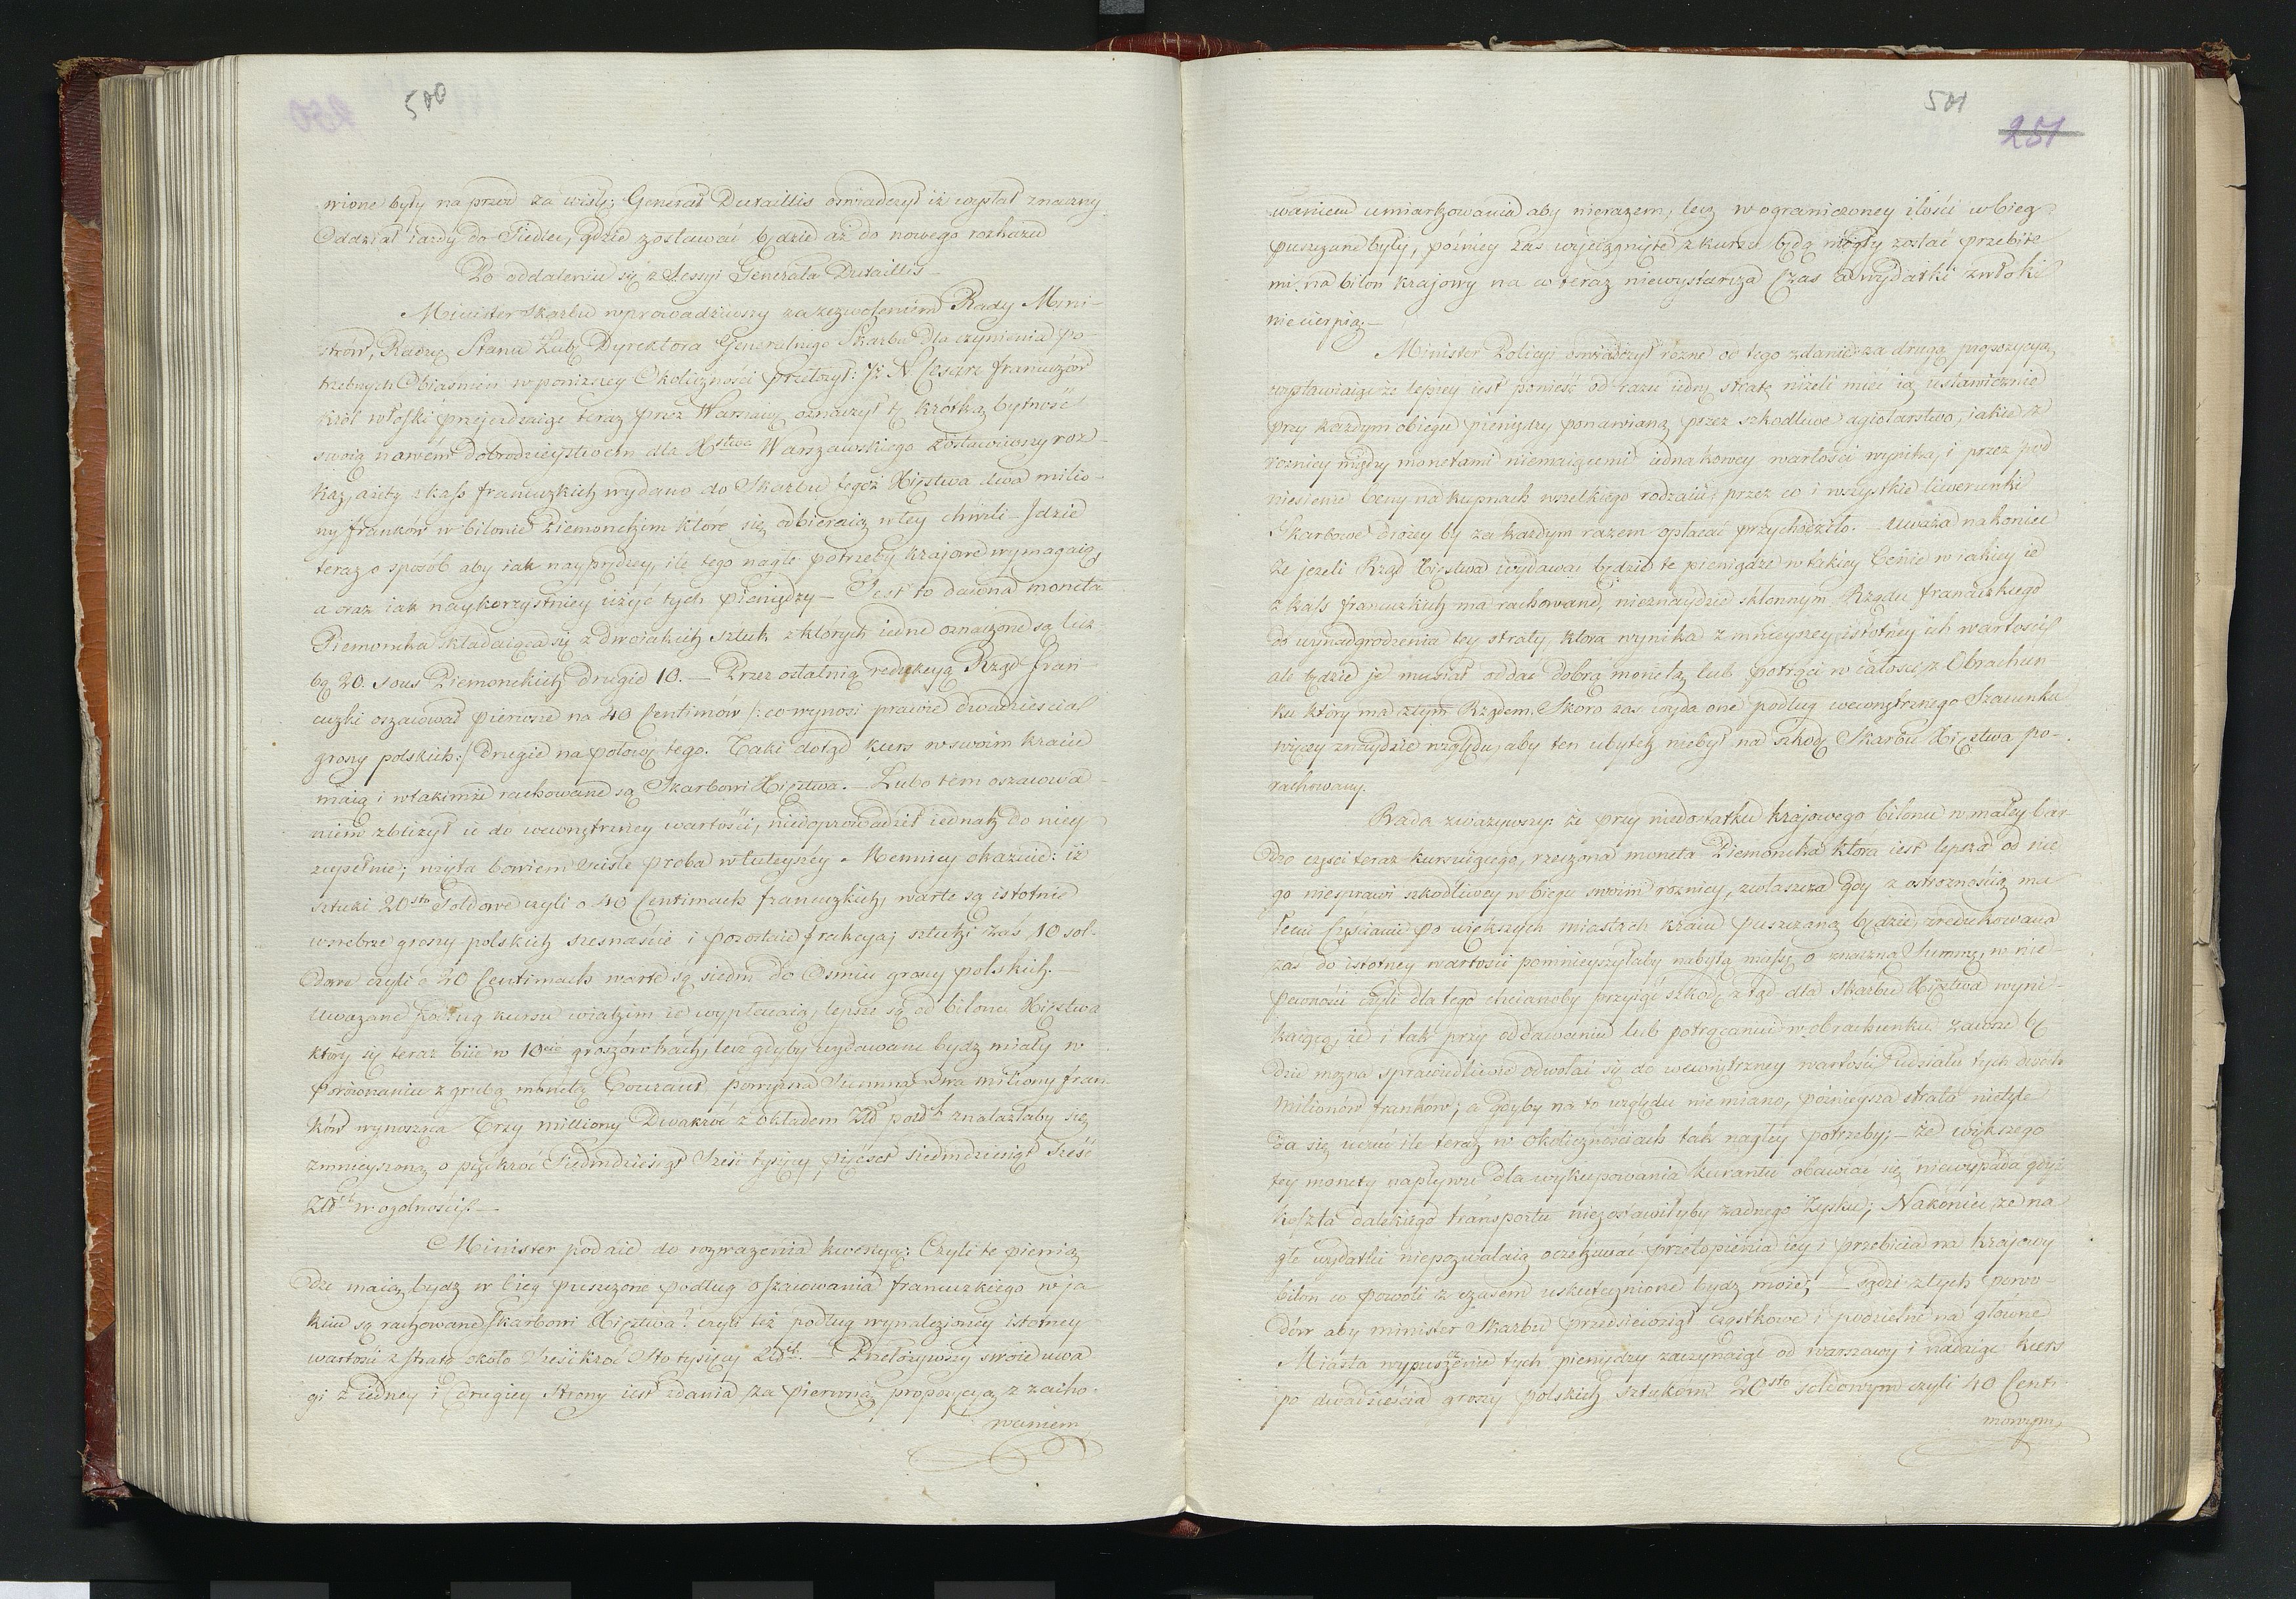 500
wione były na przod za wisłę; Generał Dutaillis oswiadczył iż wysłał znaczny
Oddział iazdy do Siedlec, gdzie zostawać będzie aż do nowego rozkazu
Po oddaleniu się z Sessyi Generała Dutaillis —
Minister Skarbu wprowadziwszy za zezwoleniem Rady Mini-
strów, Radcę Stanu Lubę Dyrektora Generalnego Skarbu dla czynienia po-
trzebnych Obiasnień w ponizszey Okoliczności przełożył: Iż N. Cesarz francuzów
Król włoski przejeżdzaiąc teraz przez Warszawę oznaczył tę krótką bytność
swoią nowém dobrodzieystwem dla Xstwa Warszawskiego zostawiwszy roz-
kaz, ażeby z kass francuzkich wydano do Skarbu tegoż Xięstwa dwa milio-
ny franków w bilonie Piemonckim które się odbieraią w tey chwili — Idzie
teraz o sposób aby iak nayprędzey, ile tego nagłe potrzeby kraiowe wymagaią,
a oraz iak naykorzystniey użyć tych pieniędzy — Jest to dawna moneta
Piemoncka składaiąca się z dwoiakich sztuk z których iedne oznaczone są licz-
bą 20. sous Piemonckich drugie 10. — Przez ostatnią redukcyą Rząd fran-
cuzki oszacował pierwsze na 40 Centimow /: co wynosi prawie dwadziescia
groszy polskich :/ drugie na połowę tego. Taki dotąd kurs w swoim kraiu
maią i w takimże rachowane są Skarbowi Xięstwa. — Lubo tém oszacowa-
niem zbliżył ie do wewnętrzney wartości, niedoprowadził iednak do niey
zupełnie; wzięta bowiem scisle proba w tuteyszey Mennicy okazuie: iż
sztuki 20sto Soldowe czyli o 40 Centimach francuzkich, warte są istotnie
w srebrze groszy polskich szesnaście i pozostaie frakcya; sztuki zaś 10 sol-
dowe czyli o 20 Centimach warte są siedm do Osmiu groszy polskich. —
Uważane podług kursu w iakim ie wypłacaią, lepsze są od bilonu Xięstwa
który się teraz biie w 10cio groszówkach, lecz gdyby wydawane bydź miały w
porównaniu z grubą monetą Courant, powyższa Summa dwa miliony fran-
ków wynosząca Trzy milliony Dwakroć z okładem Złł polsch znalazłaby się
zmnieyszoną o pięćkroć Siedmdziesiąt Sześć tysięcy pięćset siedmdziesiąt Sześć
Złłch w ogolności. —
Minister podaie do rozważenia kwestyą: Czyli te pienią-
dze maią bydź w bieg puszczone podług oszacowania francuzkiego w ja-
kim są rachowane Skarbowi Xięztwa? czyli też podług wynalezioney istotney
wartości z stratą około Sześćkroć Sto tysięcy Złłch. — Przełożywszy swoie uwa-
gi z iedney i drugiey strony iest zdania za pierwszą propozycyą z zacho-
waniem
501
251
waniem umiarkowania aby nierazem, lecz w ograniczoney ilości w bieg
puszczane były, pózniey zas wyciągnięte z kursu będą mogły zostać przebite-
mi na bilon krajowy na co teraz niewystarcza Czas a wydatki zwłoki
niecierpią. —
Minister Policyi oswiadczył rózne od tego zdanie za drugą propozycyą,
wystawiaiąc że lepiey iest ponieść od razu iedną stratę niżeli mieć ią ustawicznie
przy każdym obiegu pieniędzy ponawianą przez szkodliwe agiotarstwo, iakie z
roznicy między monetami niemaiącemi iednakowey wartości wynika, i przez pod-
niesienie Ceny na kupnach wszelkiego rodzaiu; przez co i wszystkie liwerunki
Skarbowe drożey by za każdym razem opłacać przychodziło. — Uważa nakoniec
że jeżeli Rząd Xięstwa wydawać będzie te pieniądze w takiey Cenie w iakiey ie
z kass francuzkich ma rachowane, nieznaydzie skłonnym Rządu francuzkiego
do wynadgrodzenia tey straty, która wynika z mnieyszey istotney ich wartości
ale będzie je musiał oddać dobrą monetą lub potrąci w całości z Obrachun-
ku który ma z tym Rządem. Skoro zas wyda one podług wewnętrznego Szacunku
więcey znaydzie względu, aby ten ubytek niebył na szkodę Skarbu Xięztwa po-
rachowany.
Rada zważywszy: że przy niedostatku krajowego bilonu w małey bar-
dzo części teraz kursuiącego, rzeczona moneta Piemoncka która iest lepsza od nie-
go niesprawi szkodliwey w biegu swoim roznicy, zwłaszcza gdy z ostrożnością ma-
łemi Częściami po większych miastach kraiu puszczaną będzie, zredukowana
zaś do istotney wartości pomnieyszyłaby nabytą massę o znaczną Summę, w nie-
pewności czyli dla tego chcianoby przyiąć szkodę ztąd dla Skarbu Xięztwa wyni-
kaiącą; że i tak przy oddawaniu lub potrącaniu w obrachunku zawsze bę-
dzie można sprawiedliwie odwołać się do wewnętrzney wartości udziału tych dwóch
milionów franków; a gdyby na to względu nie miano, pózniejsza strata nietyle
da się uczuć ile teraz w okolicznościach tak nagłey potrzeby; — że większego
tey monety napływu dla wykupowania kurantu obawiać się niewypada gdyż
koszta dalekiego transportu niezostawiłyby żadnego Zysku; Nakoniec, że na-
głe wydatki niepozwalaią oczekiwać przetopienia iey i przebicia na krajowy
bilon co powoli z czasem uskutecznione bydz może; — Sądzi z tych powo-
dów aby minister Skarbu przedsięwziął cząstkowe i podzielne na główne
Miasta wypuszczenie tych pieniędzy zaczynaiąc od warszawy i nadaiąc kurs
po dwadzieścia groszy polskich sztukom 20sto soldowym czyli 40 Centi-
mowym,